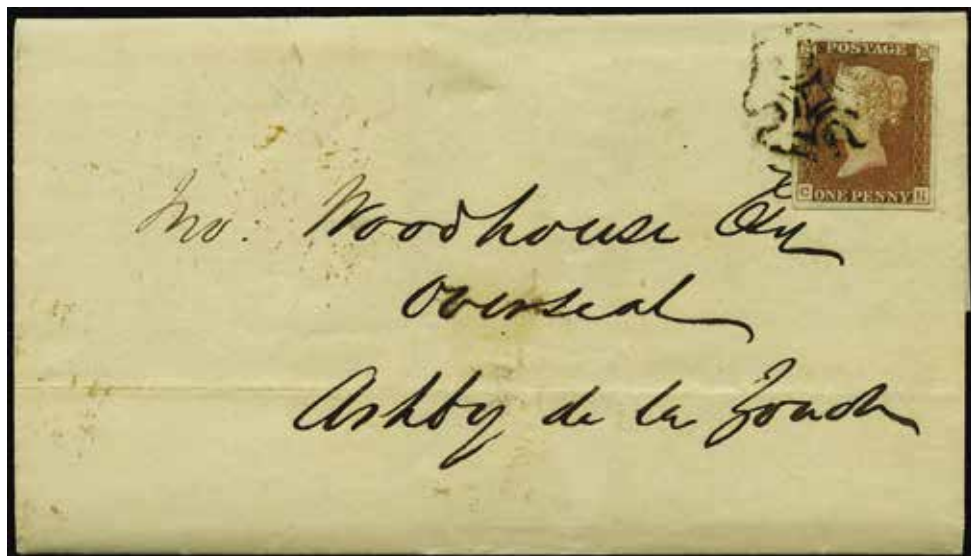 POSTAGE
C ONE PENNY H
Jno: Woodhouse Esq
Overseal
Ashby de la Zouch